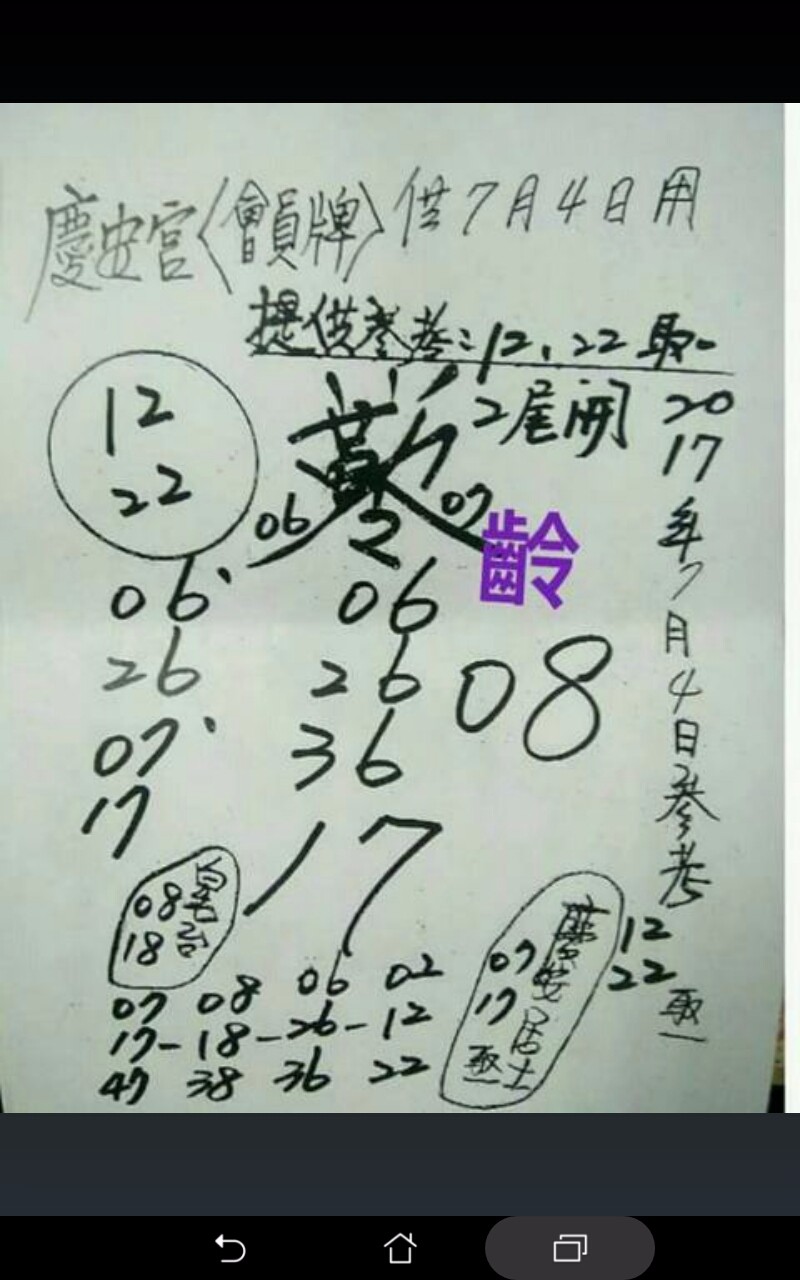 慶安宮〈會員牌〉供7月4日用
提供參考:12、22取一
2尾開
2017年7月4日參考
12
22
取一
12
22
06 2 07
齡
06
26
07
17
06
26
36
08
17
08
18
07 08 06 02
17-18-26-12
47 38 36 22
慶安居士
07
17
取一